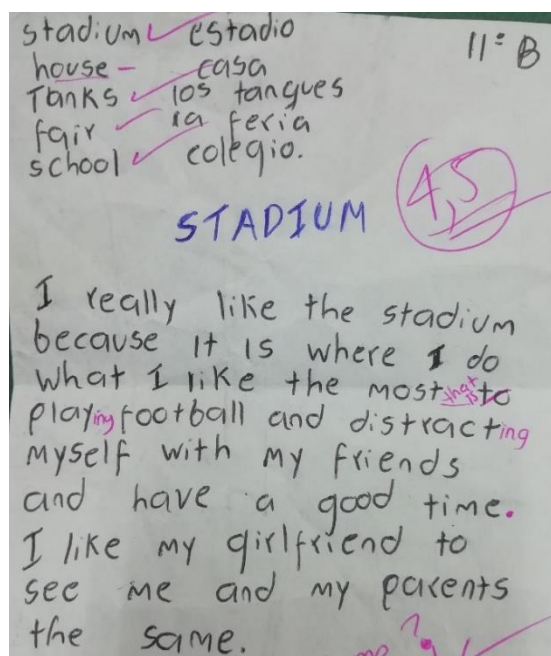 stadium estadio
11º B
house - casa
Tanks los tanques
fair la feria
school colegio.
4,5
STADIUM
I really like the stadium
because it is where I do
what I like the most that is to
playing football and distracting
myself with my friends
and have a good time.
I like my girlfriend to
see me and my parents
the same.